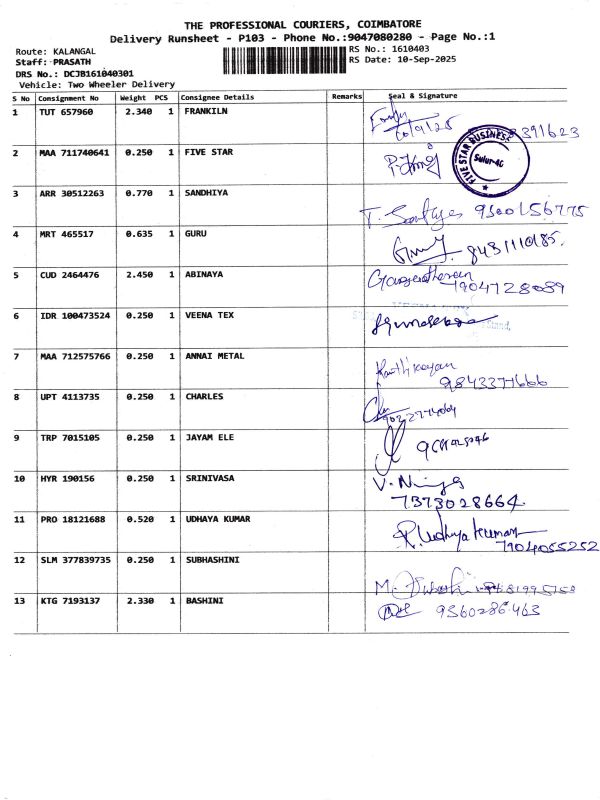 THE PROFESSIONAL COURIERS, COIMBATORE
Delivery Runsheet - P103 - Phone No.:9047080280 - Page No.:1
Route: KALANGAL RS No.: 1610403
Staff: PRASATH RS Date: 10-Sep-2025
DRS No.: DCJB161040301
Vehicle: Two Wheeler Delivery
S No Consignment No Weight PCS Consignee Details Remarks Seal & Signature
1 TUT 657960 2.340 1 FRANKILN
10/9/25 8391623
2 MAA 711740641 0.250 1 FIVE STAR
FIVE STAR BUSINESS Sulur-4C
3 ARR 30512263 0.770 1 SANDHIYA
T. 9500156775
4 MRT 465517 0.635 1 GURU
8431110185.
5 CUD 2464476 2.450 1 ABINAYA
7904728089
6 IDR 100473524 0.250 1 VEENA TEX
7 MAA 712575766 0.250 1 ANNAI METAL
Karthikeyan
9843377666
8 UPT 4113735 0.250 1 CHARLES
9 TRP 7015105 0.250 1 JAYAM ELE
10 HYR 190156 0.250 1 SRINIVASA
V.
7373028664
11 PRO 18121688 0.520 1 UDHAYA KUMAR
R. Udhya kumar
7904055252
12 SLM 377839735 0.250 1 SUBHASHINI
M.
13 KTG 7193137 2.330 1 BASHINI
9360286463